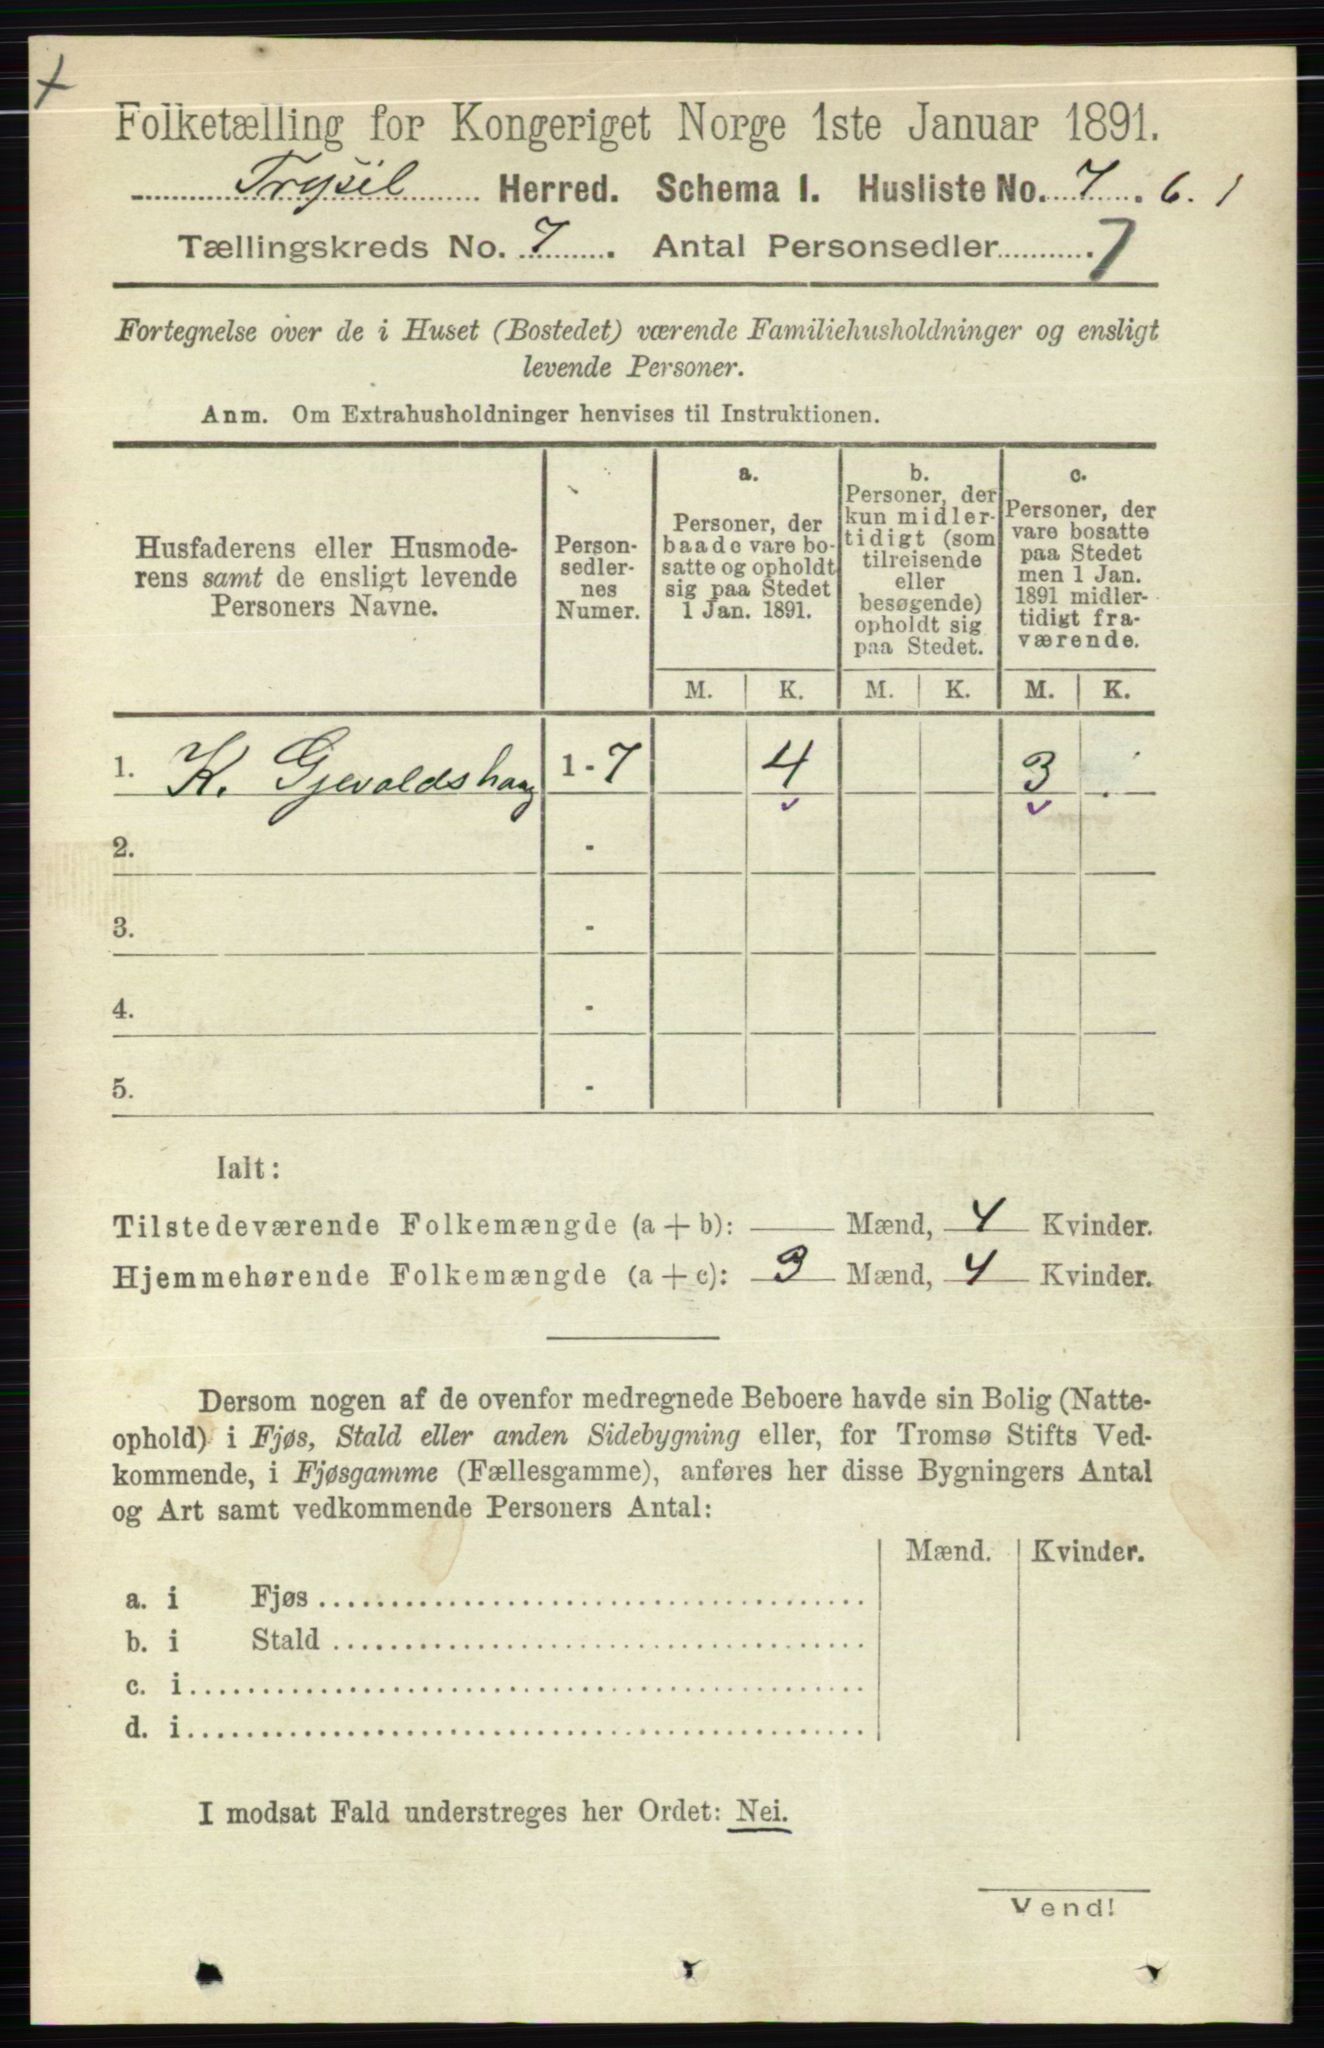 Folketælling for Kongeriget Norge 1ste Januar 1891.
Trysil Herred. Schema I. Husliste No. 7. 6. 1
Tællingskreds No. 7. Antal Personsedler 7
Fortegnelse over de i Huset (Bostedet) værende Familiehusholdninger og ensligt
levende Personer.
Anm. Om Extrahusholdninger henvises til Instruktionen.
Husfaderens eller Husmode-
rens samt de ensligt levende
Personers Navne.
Person-
sedler-
nes
Numer.
a.
Personer, der
baade vare bo-
satte og opholdt
sig paa Stedet
1 Jan. 1891.
b.
Personer, der
kun midler-
tidigt (som
tilreisende
eller
besøgende)
opholdt sig
paa Stedet.
c.
Personer, der
vare bosatte
paa Stedet
men 1 Jan.
1891 midler-
tidigt fra-
værende.
M. K. M. K. M. K.
1. K. Gjevaldshaug 1-7 4 3
2. -
3. -
4. -
5. -
Ialt:
Tilstedeværende Folkemængde (a + b): Mænd, 4 Kvinder.
Hjemmehørende Folkemængde (a + c): 3 Mænd, 4 Kvinder.
Dersom nogen af de ovenfor medregnede Beboere havde sin Bolig (Natte-
ophold) i Fjøs, Stald eller anden Sidebygning eller, for Tromsø Stifts Ved-
kommende, i Fjøsgamme (Fællesgamme), anføres her disse Bygningers Antal
og Art samt vedkommende Personers Antal:
Mænd. Kvinder.
a. i Fjøs
b. i Stald
c. i
d. i
I modsat Fald understreges her Ordet: Nei.
Vend!